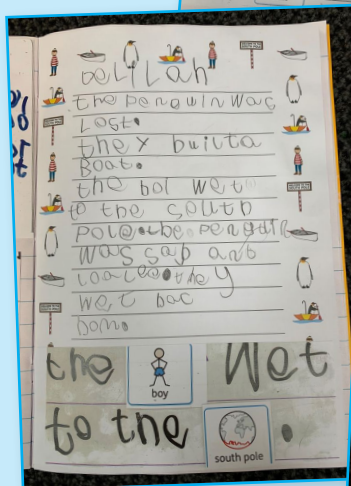 Delilah
the penguin was
Lost.
they builta
Boat.
the boi wet
to the south
pole.the penguin
was sap anb
loalee.they
wet bac
hom.
the boy Wet
to the south pole .